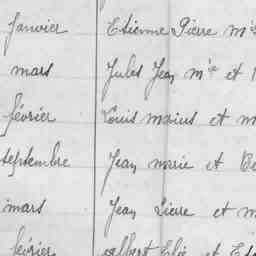 Janvier Etienne Pierre Me
mars Jules Jean Me et
février Louis marius et m
septembre Jean marie et
mars Jean Pierre et m
février Albert Elie et